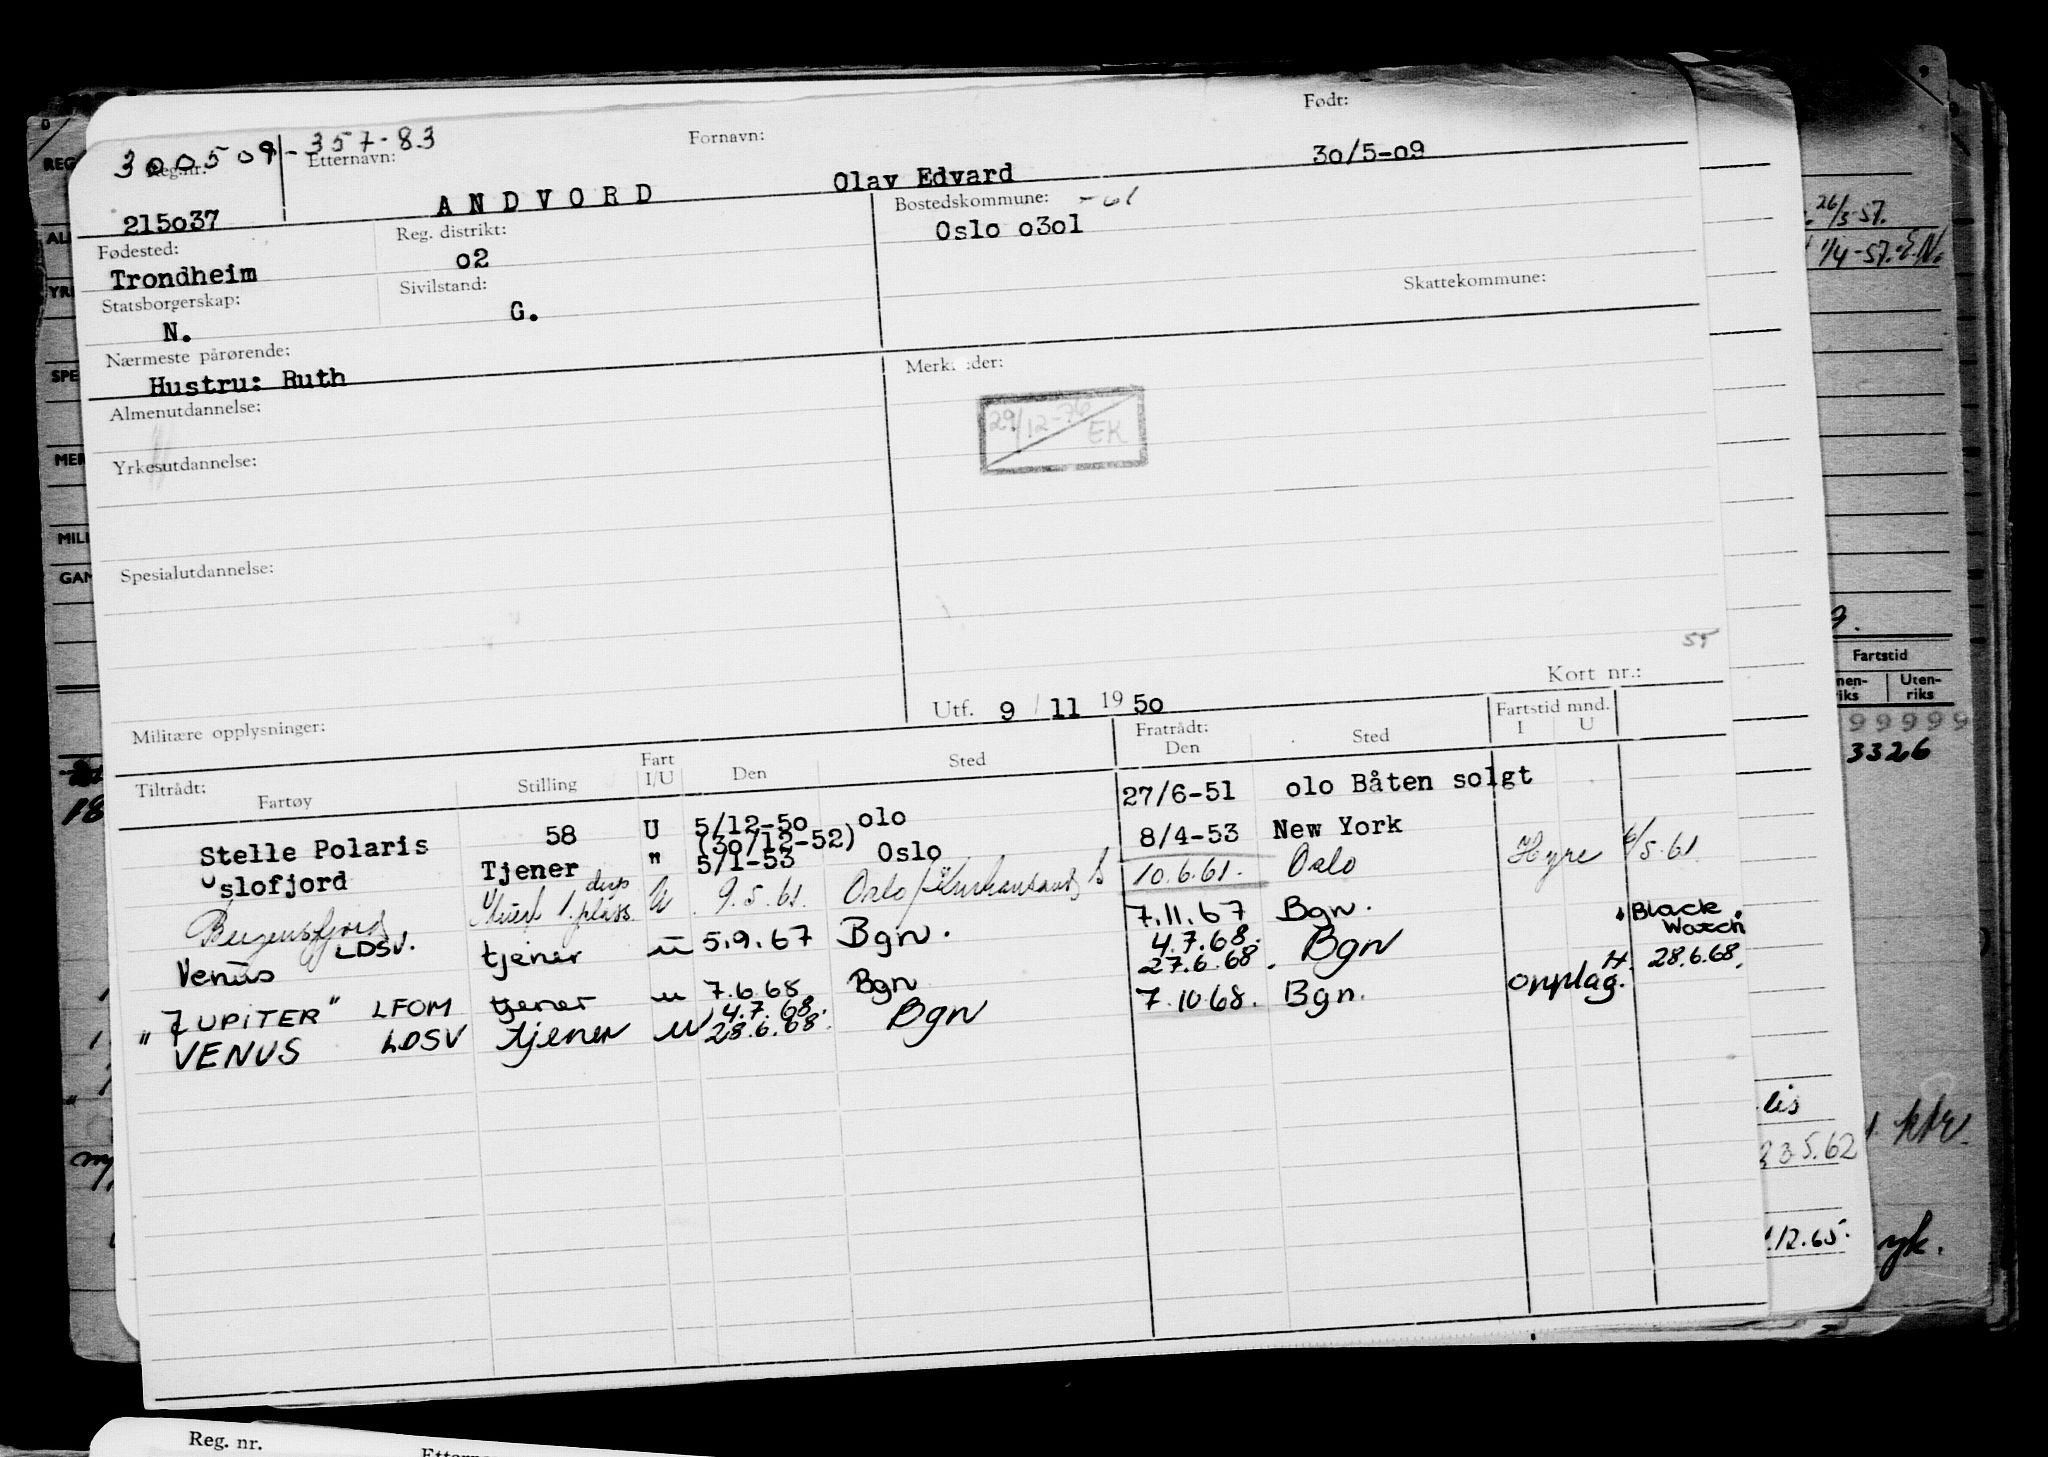 300509-357-83
Reg.nr.
Etternavn:
Fornavn:
Født:
215o37
ANDVORD
Olav Edvard
3o/5-o9
Fødested:
Reg. distrikt:
Bostedskommune: -01
Trondheim
o2
Oslo o3o1
Statsborgerskap:
Sivilstand:
Skattekommune:
N.
G.
Nærmeste pårørende:
Hustru: Ruth
Merknader:
Almenutdannelse:
29/12-76
EK
Yrkesutdannelse:
Spesialutdannelse:
55
Kort nr.:
Utf. 9 / 11 19 5o
Militære opplysninger:
Tiltrådt:
Fartøy
Stilling
Fart
I/U
Den
Sted
Fratrådt:
Den
Sted
Fartstid mnd.
I
U
Stelle Polaris 58 U 5/12-5o olo 27/6-51 olo Båten solgt
(3o/12-52)
Oslofjord Tjener " 5/1-53 Oslo 8/4-53 New York
Bergensfjord 1. plass U 9.5.61. Oslo/Kristiansand S 10.6.61. Oslo Hyre 6/5.61.
Venus LDSV. tjener u 5.9.67 Bgn. 7.11.67 Bgn.
"Black Watch"
4.7.68.
"JUPITER" LFOM tjener u 7.6.68 Bgn 27.6.68. Bgn H. 28.6.68.
4.7.68.
VENUS LDSV tjener u 28.6.68. Bgn 7.10.68. Bgn. Opplag.
26/3-57.
1/4-57. E.N.
Fartstid
Uten-
riks
99999
3326
18
23.5.62
12.65.
Reg. nr.